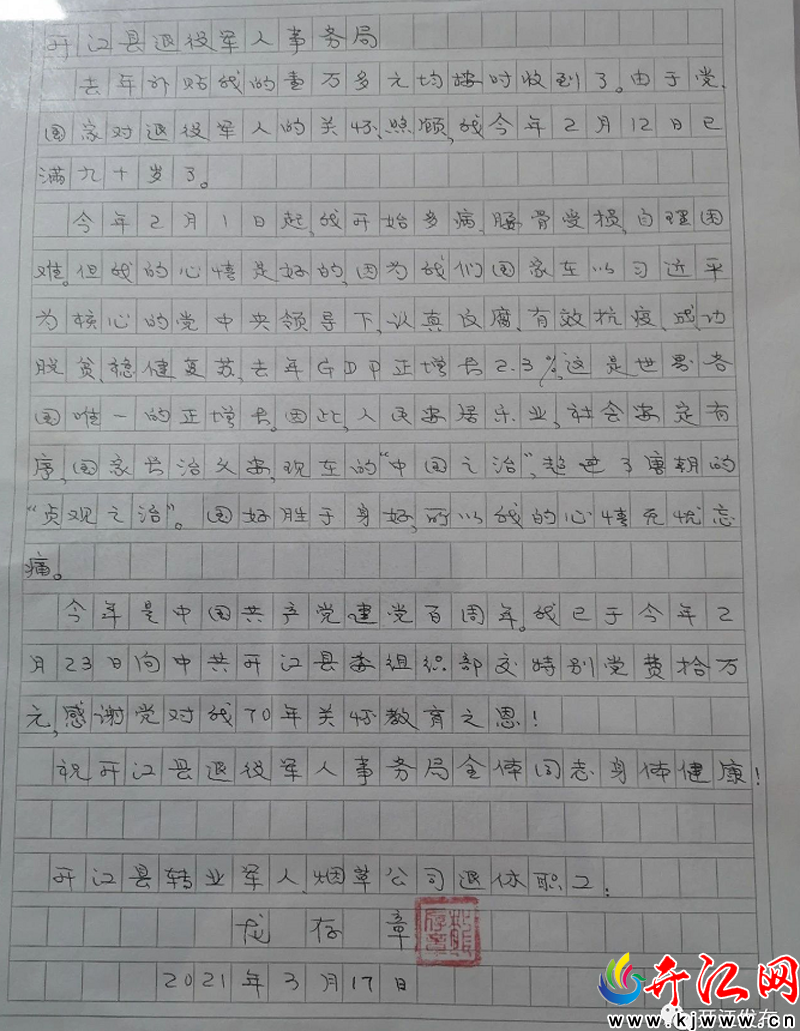 开江县退役军人事务局
去年补贴我的壹万多元均按时收到了。由于党、
国家对退役军人的关怀、照顾,我今年2月12日已
满九十岁了。
今年2月1日起,我开始多病,腰骨受损,自理困
难。但我的心情是好的,因为我们国家在以习近平
为核心的党中央领导下,认真反腐,有效抗疫,成功
脱贫,稳健复苏,去年GDP正增长2.3%,这是世界各
国唯一的正增长。因此,人民安居乐业,社会安定有
序,国家长治久安,现在的“中国之治”,超进了唐朝的
“贞观之治”。国好胜于身好,所以我的心情无忧忘
痛。
今年是中国共产党建党百周年。我已于今年2
月23日向中共开江县委组织部交特别党费拾万
元,感谢党对我70年关怀教育之恩!
祝开江县退役军人事务局全体同志身体健康!
开江县转业军人、烟草公司退休职工:
存章
2021年3月17日
开江网
www.kjwww.cn
开江发布